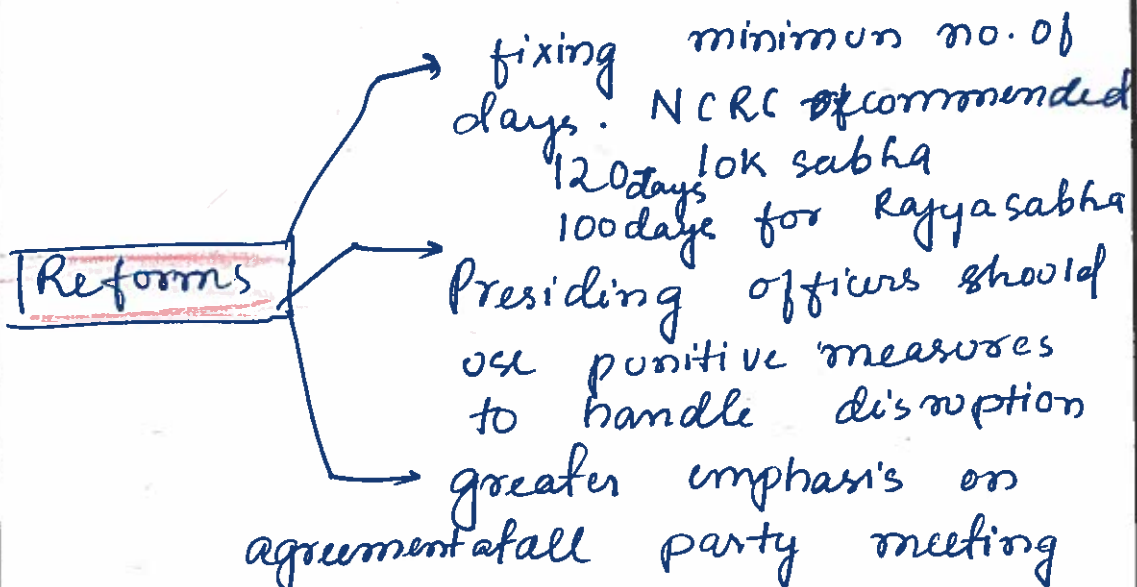 fixing minimun no. of
days. NCRC recommended
120 days lok sabha
100 days for Rajyasabha
Reforms
Presiding officers should
use punitive measures
to handle disruption
greater emphasis on
agreement at all party meeting